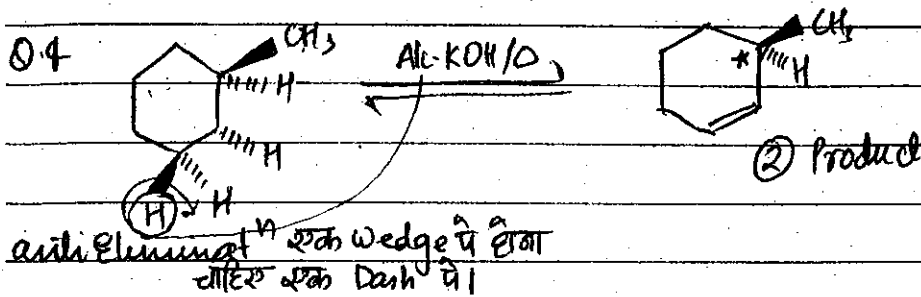 Q.4
CH₃
H
H
H
H
Alc. KOH/Δ
CH₃
*
H
② Product
anti Eliminatⁿ एक Wedge पे होना
चाहिए एक Dash पे।